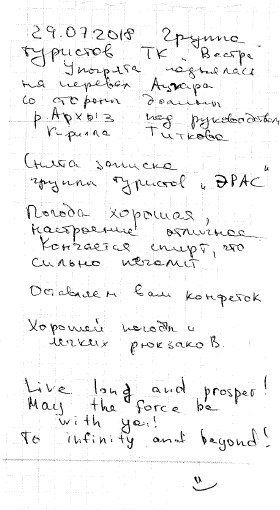 29.07.2018 Группа
туристов ТК "Вестра"
Упырята поднялась
на перевал
со стороны долины
р. Архыз под руководством
Кирилла Титкова
Снята записка
группы туристов "ЭРАС"
Погода хорошая,
настроение отличное
Кончается спирт, это
сильно печалит
Оставляем Вам конфеток
Хорошей погоды и
легких рюкзаков.
Live long and prosper!
May the force be
with you!
To infinity and beyond!